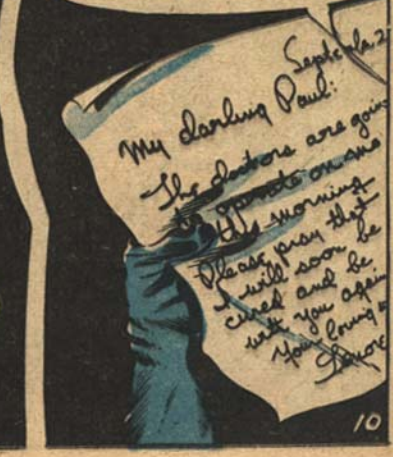 My darling Paul:
The doctors are
to operate on me
this morning
Please pray that
I will soon be
cured and be
with you again
Your loving
Lenore
10